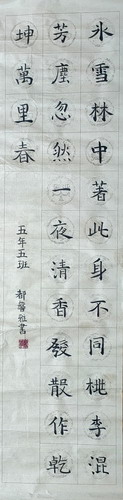 氷雪林中著此身不同桃李混
芳塵忽然一夜清香發散作乾
坤萬里春
五年五班